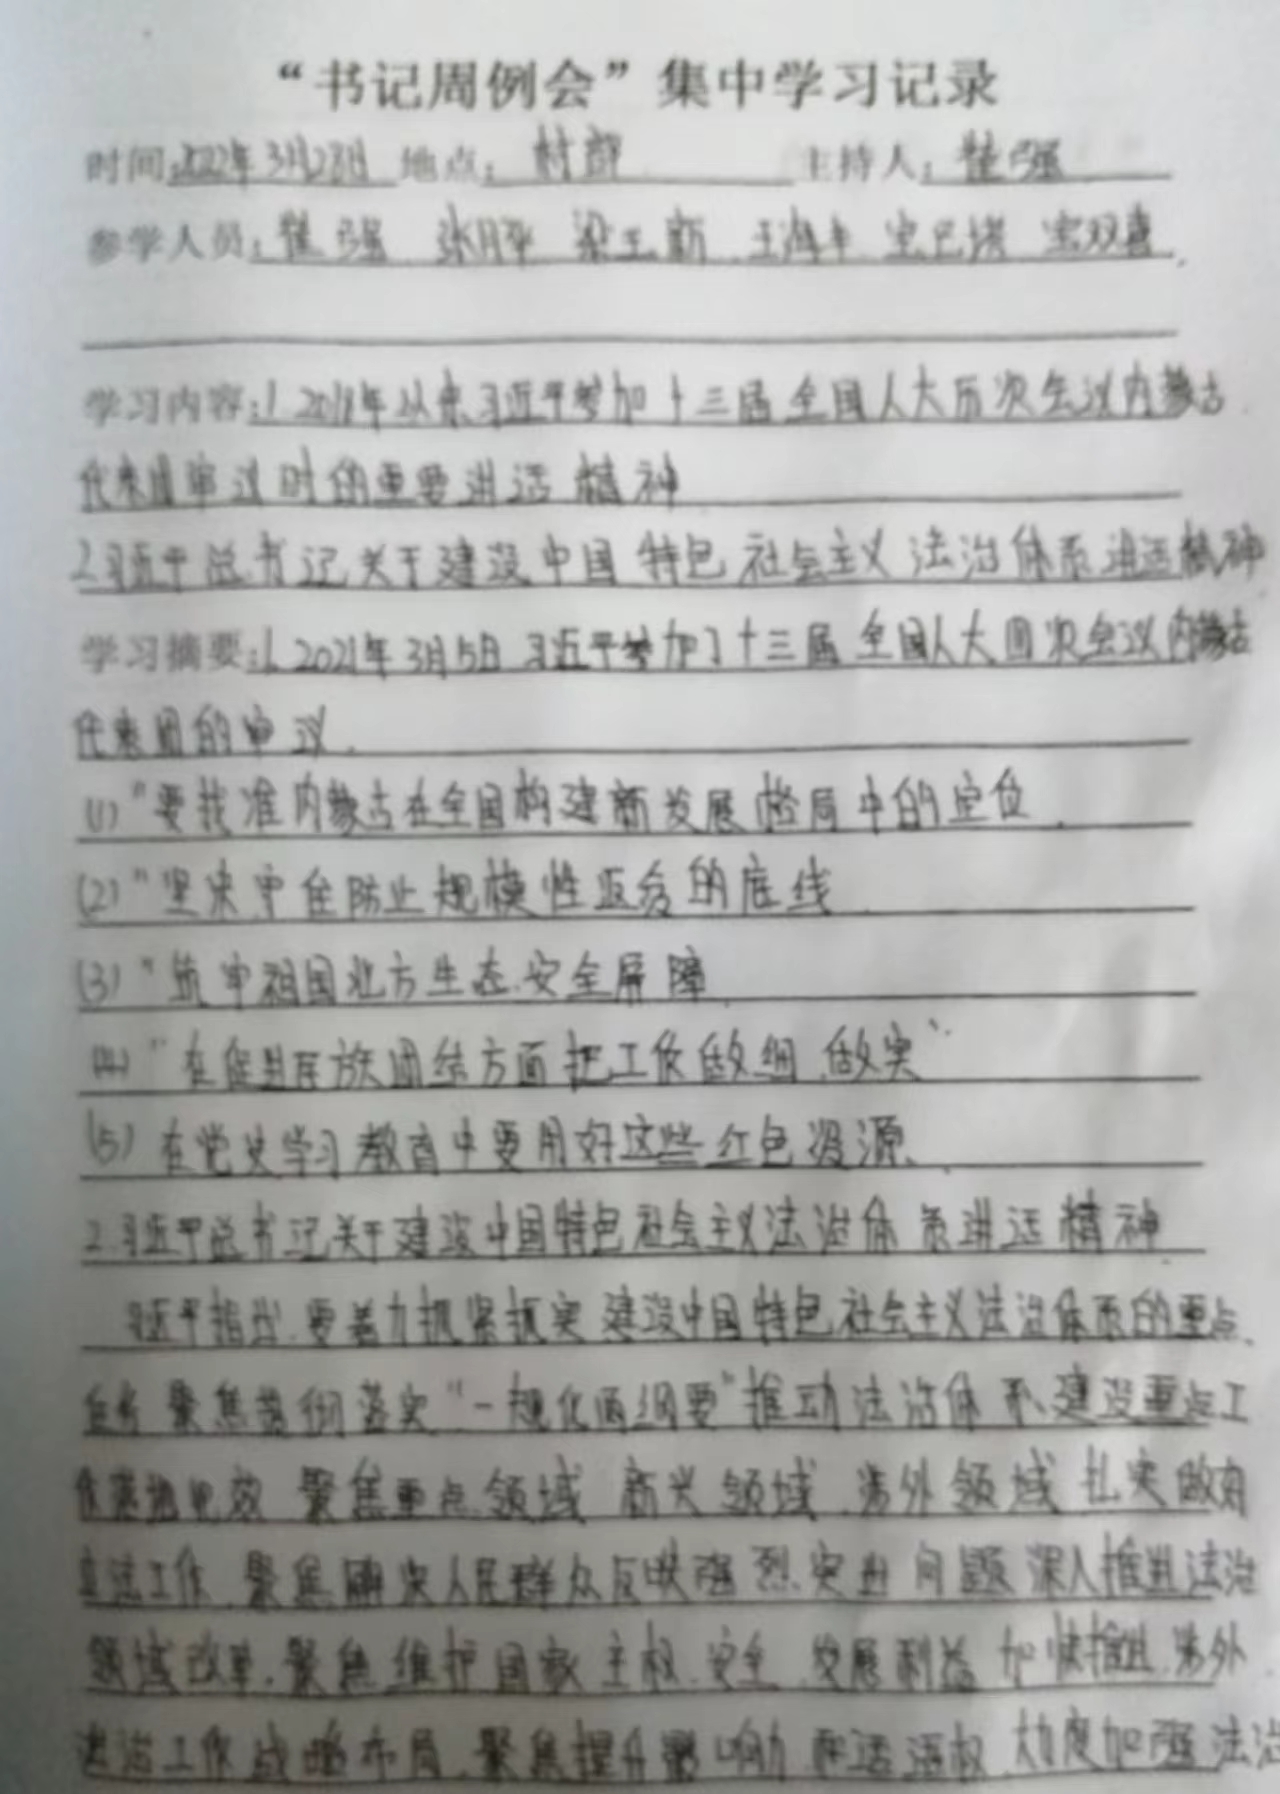 “书记周例会”集中学习记录
时间:2022年3月28日 地点: 村部 主持人: 崔强
参学人员: 崔强 张月平 梁玉新 王海丰 宝双喜
学习内容:1.2018年以来习近平参加十三届全国人大历次会议内蒙古
代表团审议时的重要讲话精神
2.习近平总书记关于建设中国特色社会主义法治体系讲话精神
学习摘要:1.2021年3月5日习近平参加了十三届全国人大四次会议内蒙古
代表团的审议.
(1)“要找准内蒙古在全国构建新发展格局中的定位.
(2)“坚决守住防止规模性返贫的底线.
(3)“筑牢祖国北方生态.安全屏障.
(4)“在促进民族团结方面把工作做细.做实”
(5)在党史学习教育中要用好这些红色资源.
2.习近平总书记关于建设中国特色社会主义法治体系讲话精神.
习近平指出.要着力抓紧抓实建设中国特色社会主义法治体系的重点.
任务 聚焦贯彻落实“一规化两纲要”推动法治体系建设重点工
作落地见效 聚焦重点领域 新兴领域.涉外领域 扎实做有
立法工作.聚焦解决人民群众反映强烈.突出问题深入推进法治
领域改革.聚焦维护国家主权.安全.发展利益加快推进.涉外
法治工作战略布局.聚焦提升影响力和话语权.大力度加强法治